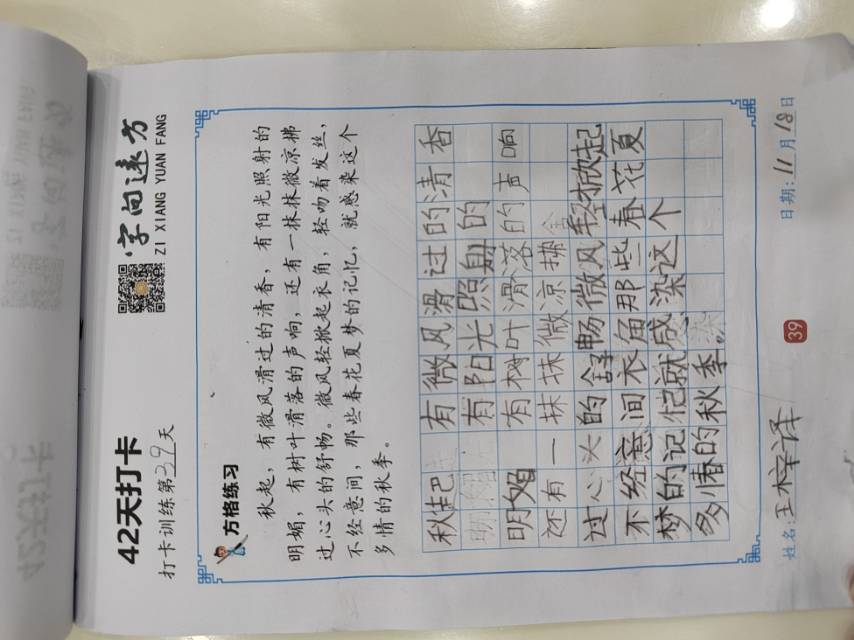 42天打卡
打卡训练第39天
字向远方
ZI XIANG YUAN FANG
方格练习
秋起，有微风滑过的清香，有阳光照射的
明媚，有树叶滑落的声响，还有一抹抹微凉拂
过心头的舒畅。微风轻掀起衣角，轻吻着发丝，
不经意间，那些春花夏梦的记忆，就感染这个
多情的秋季。
秋起 有微风滑过的清香
有阳光照射的
明媚 有树叶滑落的声响
还有一抹抹微凉拂
过心头的舒畅微风轻掀起
不经意间衣角那些春花夏
梦的记忆就感染这个
多情的秋季。
姓名：王梓译
39
日期：11月18日